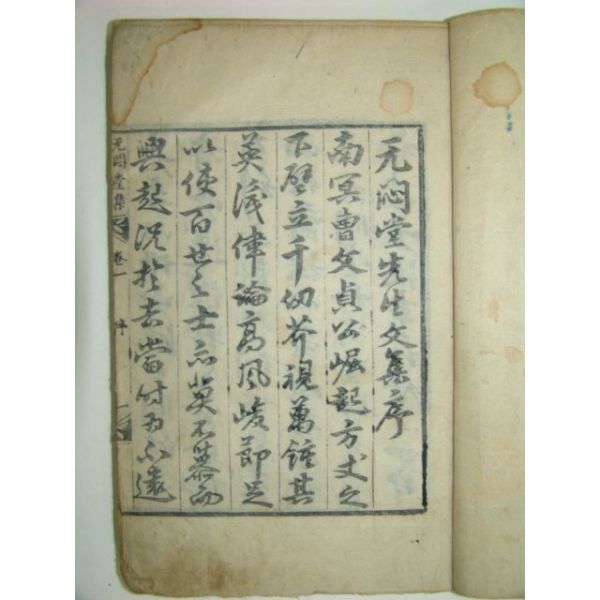 无悶堂先生文集序
南冥曹文貞公崛起方丈之
下壁立千仞芥視萬鍾其
英識偉論高風峻節足
以使百世之士亦莫不而
興起況於去當時为不遠
无悶堂集 卷一 序 一